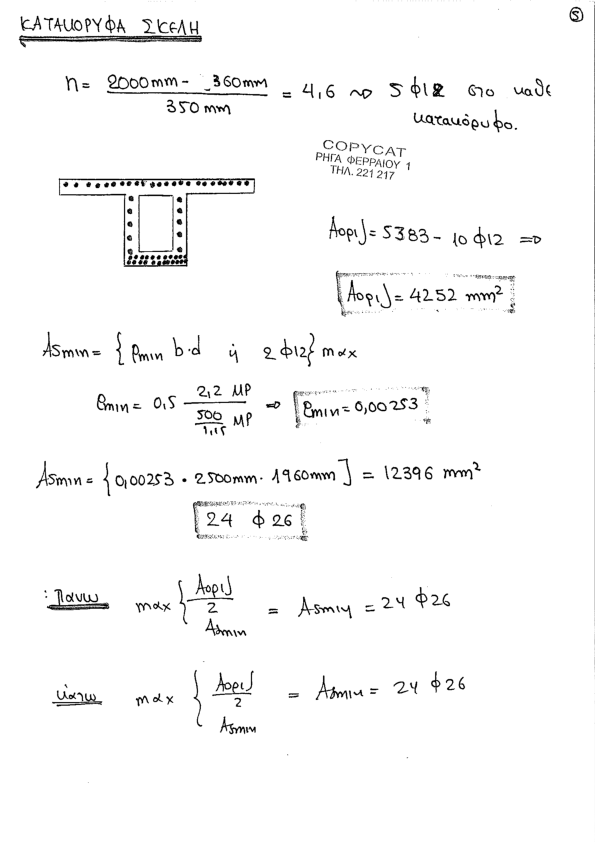 5
ΚΑΤΑΚΟΡΥΦΑ ΣΚΕΛΗ
n = (2000mm - 360mm) / 350mm = 4,6 ⇝ 5 Φ12 στο καθε
κατακόρυφο.
COPYCAT
ΡΗΓΑ ΦΕΡΡΑΙΟΥ 1
ΤΗΛ. 221 217
Aοριζ = 5383 - 10 Φ12 ⇒
Aοριζ = 4252 mm²
Asmin = { ρmin b·d ή 2 Φ12 } max
ρmin = 0,5 (2,2 MP) / (500/1,15 MP) ⇒ ρmin = 0,00253
Asmin = { 0,00253 · 2500mm · 1960mm ] = 12396 mm²
24 Φ 26
: Πανω max { Aοριζ/2 Asmin = Asmin = 24 Φ26
κάτω max { Aοριζ/2 Asmin = Asmin = 24 Φ26